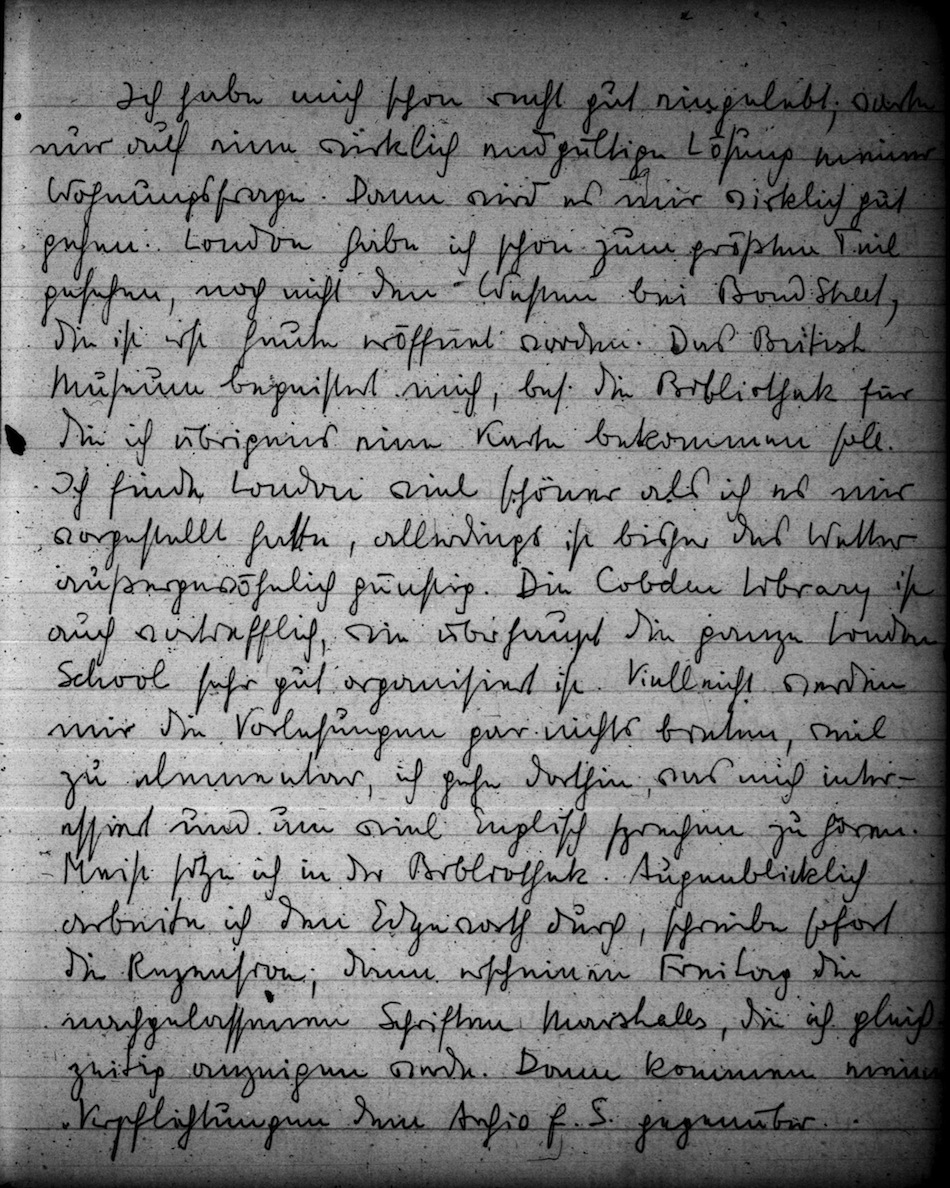 Ich habe mich schon recht gut eingelebt, warte
nur auf eine wirklich endgültige Lösung meiner
Wohnungsfrage. Dann wird es mir wirklich gut
gehen. London habe ich schon zum größten Teil
gesehen, noch nicht den Westen bei Bond Street,
die ist erst heute eröffnet worden. Das British
Museum begeistert mich, bes. die Bibliothek für
die ich übrigens eine Karte bekommen soll.
Ich finde London viel schöner als ich es mir
vorgestellt hatte, allerdings ist bisher das Wetter
außergewöhnlich günstig. Die Cobden Library ist
auch vortrefflich, wie überhaupt die ganze London
School sehr gut organisiert ist. Vielleicht werden
mir die Vorlesungen gar nichts bieten, weil
zu elementar, ich gehe dorthin, was mich inter-
essiert und um viel Englisch sprechen zu hören.
Meist sitze ich in der Bibliothek. Augenblicklich
arbeite ich den Edgeworth durch, schreibe sofort
die Rezension; dann erscheinen Freitag die
nachgelassenen Schriften Marshalls, die ich gleich
zeitig anzeigen werde. Dann kommen meine
Verpflichtungen dem Archiv f. S. gegenüber.